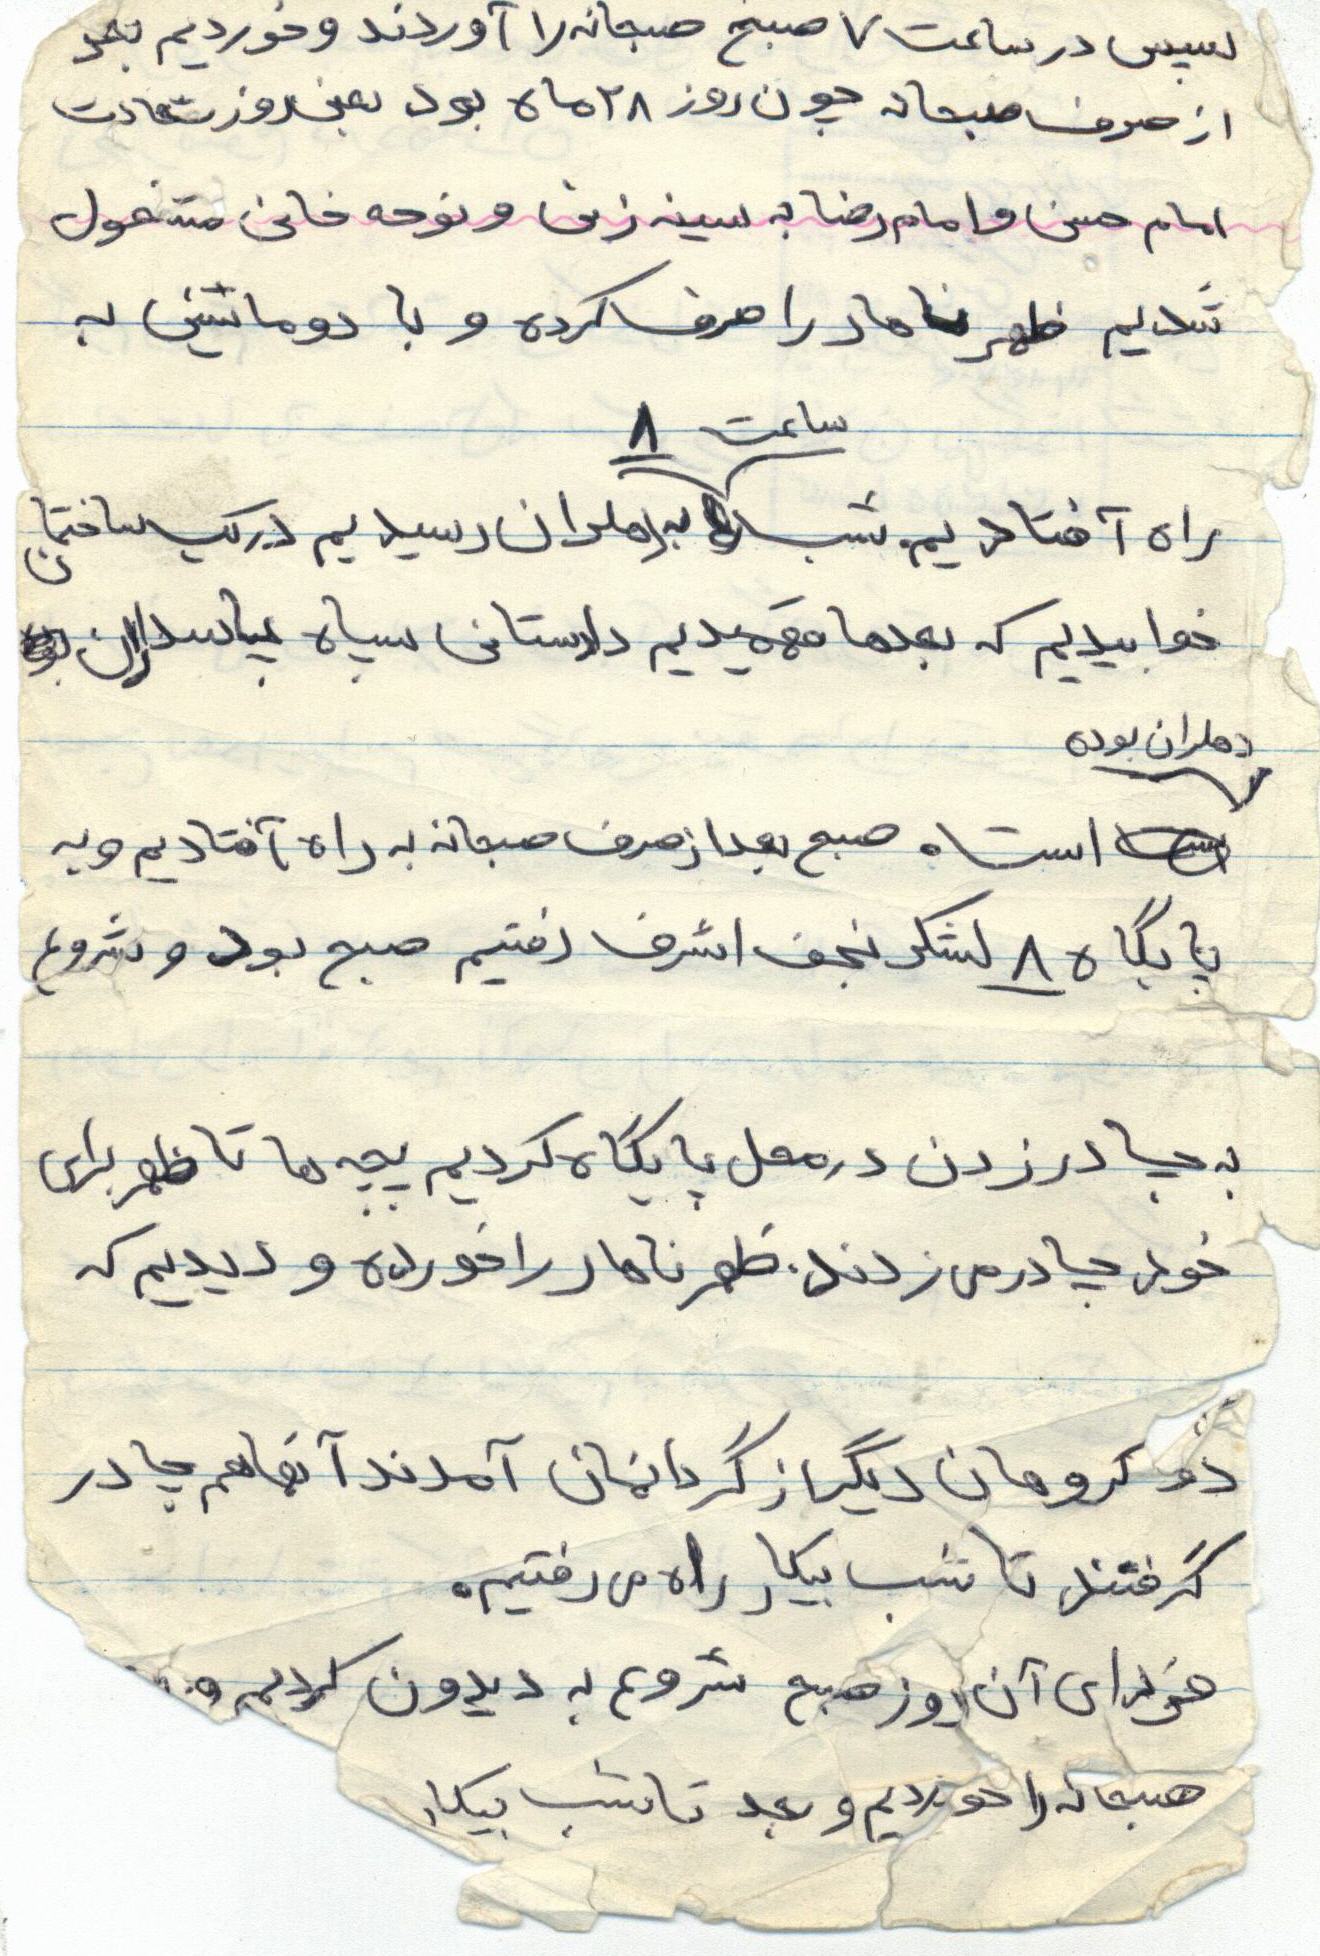 سپس در ساعت ۷ صبح صبحانه را آوردند و خوردیم بعد
از صرف صبحانه چون روز ۲۸ ماه بود یعنی روز شهادت
امام حسن و امام رضا به سینه زنی و نوحه خانی مشغول
شدیم ظهر ناهار را صرف کرده و با دو ماشین به
ساعت ۸
راه آفتادیم. شب به دهلران رسیدیم در یک ساختمانی
خوابیدیم که بعدها فهمیدیم دادستانی سپاه پاسداران
دهلران بوده
است. صبح بعد از صرف صبحانه به راه آفتادیم و به
پایگاه ۸ لشکر نجف اشرف رفتیم صبح بود و شروع
به چادر زدن در محل پایگاه کردیم بچه ها تا ظهر برای
خود چادر می زدند. ظهر ناهار را خورده و دیدیم که
دو گروهان دیگر از گردانمان آمدند آنها هم چادر
گرفتند تا شب بیکار راه می رفتیم.
فردای آن روز صبح شروع به دیدون کردیم و
صبحانه را خوردیم و بعد تا شب بیکار